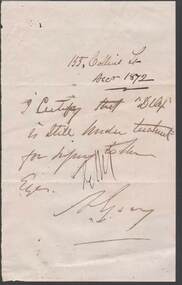 155. Collins St
Decr 1872
I Certify that "
is Still Under treatment
for injury to the
Eyes.